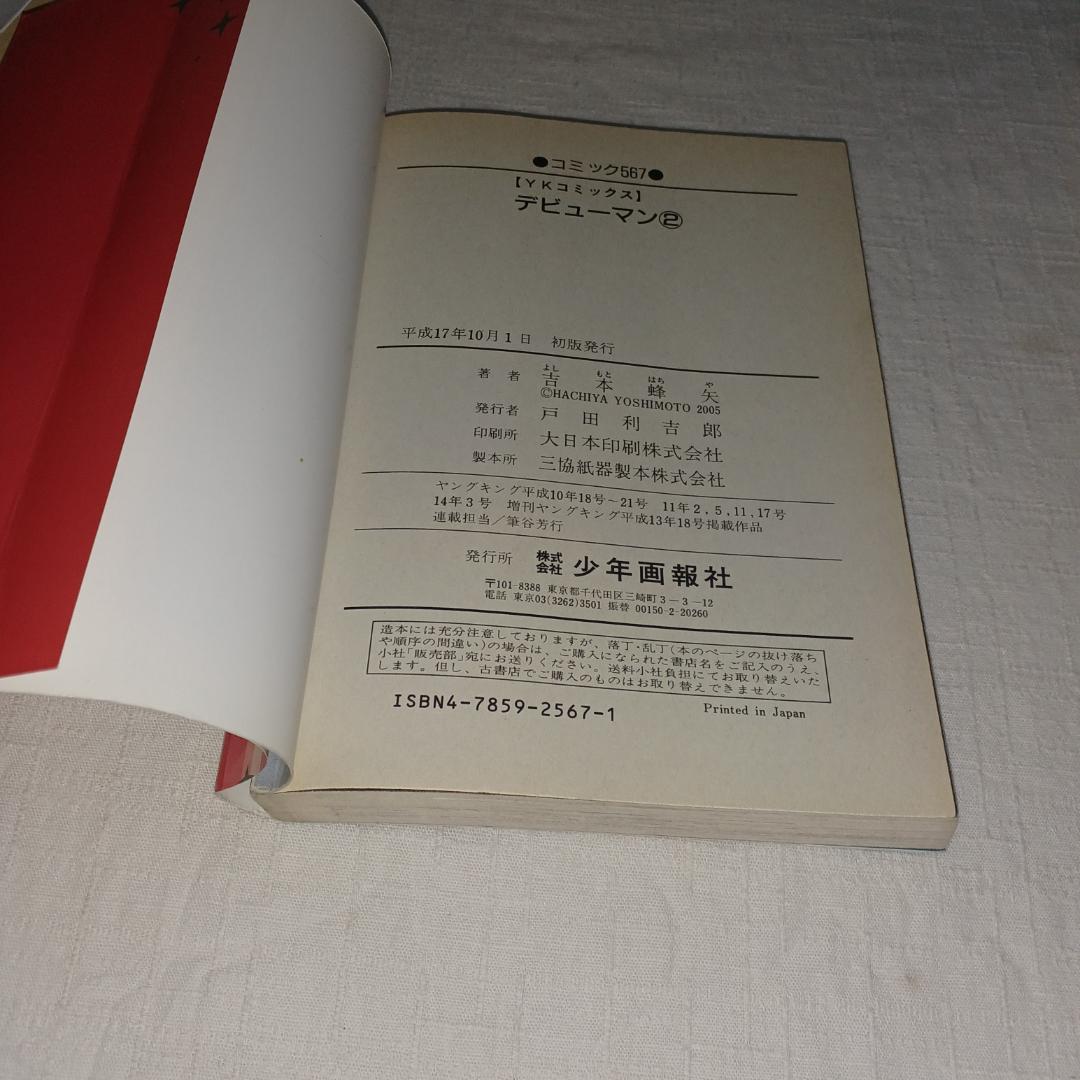 ●コミック567●
【YKコミックス】
デビューマン②
平成17年10月1日 初版発行
よし もと はち や
著者 吉本蜂矢
©HACHIYA YOSHIMOTO 2005
発行者 戸田利吉郎
印刷所 大日本印刷株式会社
製本所 三協紙器製本株式会社
ヤングキング平成10年18号〜21号 11年2,5,11,17号
14年3号 増刊ヤングキング平成13年18号掲載作品
連載担当/筆谷芳行
発行所 株式会社 少年画報社
〒101-8388 東京都千代田区三崎町3-3-12
電話 東京03(3262)3501 振替 00150-2-20260
造本には充分注意しておりますが、落丁・乱丁(本のページの抜け落ち
や順序の間違い)の場合は、ご購入になられた書店名をご記入のうえ、
小社「販売部」宛にお送りください。送料小社負担にてお取り替えいた
します。但し、古書店でご購入のものはお取り替えできません。
ISBN4-7859-2567-1
Printed in Japan